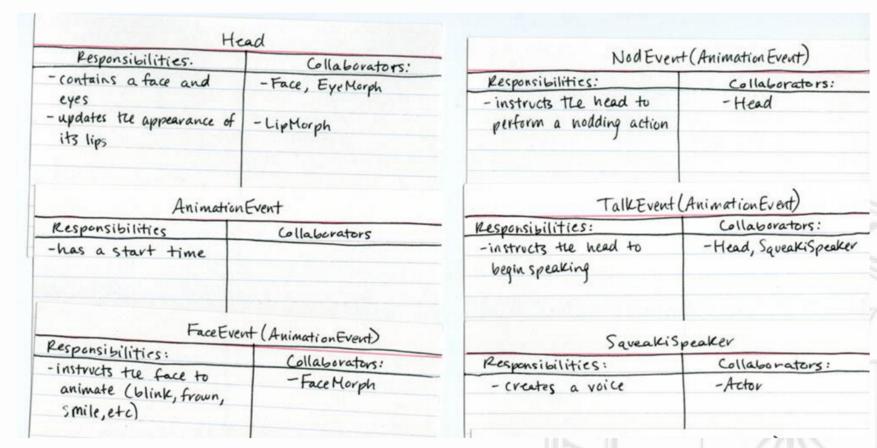 Head
Responsibilities. Collaborators:
- contains a face and - Face, EyeMorph
eyes
- updates the appearance of - LipMorph
its lips
AnimationEvent
Responsibilities Collaborators
- has a start time
FaceEvent (AnimationEvent)
Responsibilities: Collaborators:
- instructs the face to - FaceMorph
animate (blink, frown,
smile, etc)
NodEvent (AnimationEvent)
Responsibilities: Collaborators:
- instructs the head to - Head
perform a nodding action
TalkEvent (AnimationEvent)
Responsibilities: Collaborators:
- instructs the head to - Head, SqueakiSpeaker
begin speaking
SqueakiSpeaker
Responsibilities: Collaborators:
- creates a voice - Actor